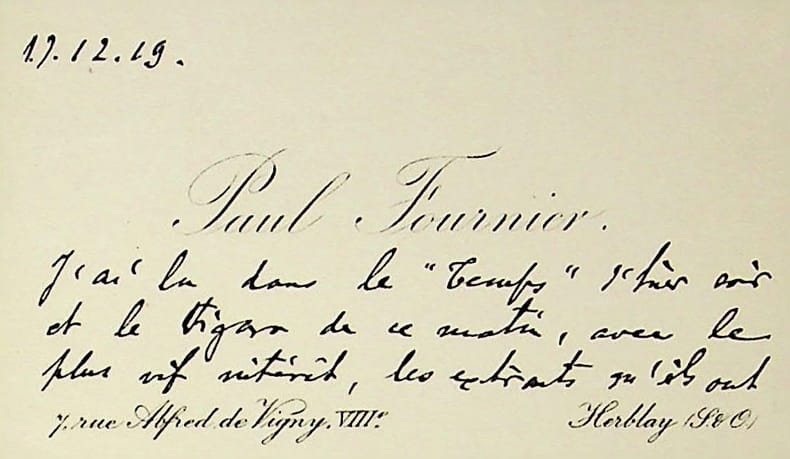 17.12.19.
Paul Fournier.
J'ai lu dans le "Temps" d'hier soir
et le Figaro de ce matin, avec le
plus vif intérêt, les extraits qu'ils ont
7, rue Alfred de Vigny. VIIIe.
Herblay (S.&O.)